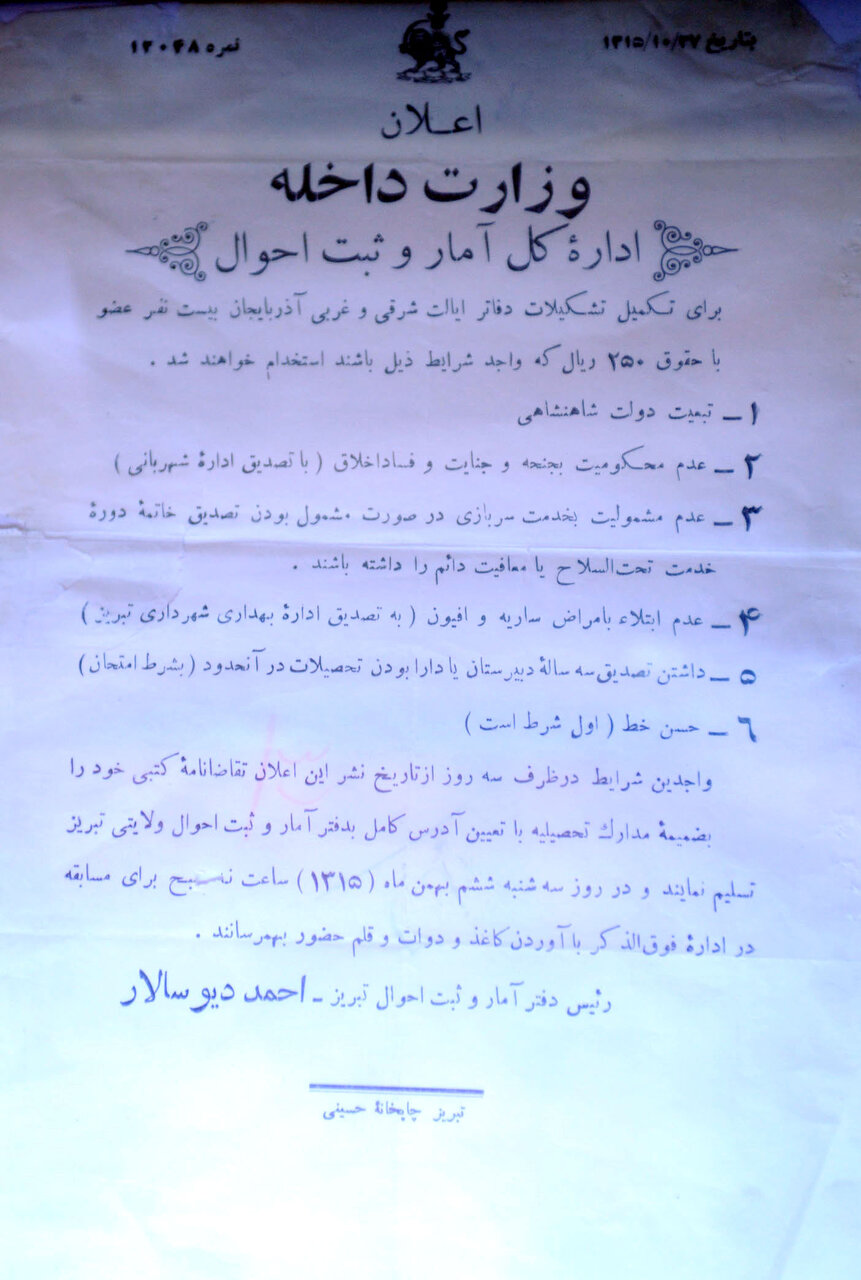 بتاریخ ۱۳۱۵/۱۰/۲۷
نمره ۱۲۰۴۸
اعلان
وزارت داخله
ادارهٔ کل آمار و ثبت احوال
برای تکمیل تشکیلات دفاتر ایالت شرقی و غربی آذربایجان بیست نفر عضو
با حقوق ۲۵۰ ریال که واجد شرایط ذیل باشند استخدام خواهند شد .
۱ ـ تبعیت دولت شاهنشاهی
۲ ـ عدم محکومیت بجنحه و جنایت و فساداخلاق ( با تصدیق ادارهٔ شهربانی )
۳ ـ عدم مشمولیت بخدمت سربازی در صورت مشمول بودن تصدیق خاتمهٔ دورهٔ
خدمت تحت‌السلاح یا معافیت دائم را داشته باشند .
۴ ـ عدم ابتلاء بامراض ساریه و افیون ( به تصدیق ادارهٔ بهداری شهرداری تبریز )
۵ ـ داشتن تصدیق سه سالهٔ دبیرستان یا دارا بودن تحصیلات در آنحدود ( بشرط امتحان )
۶ ـ حسن خط ( اول شرط است )
واجدین شرایط درظرف سه روز ازتاریخ نشر این اعلان تقاضانامهٔ کتبی خود را
بضمیمهٔ مدارک تحصیلیه با تعیین آدرس کامل بدفتر آمار و ثبت احوال ولایتی تبریز
تسلیم نمایند و در روز سه شنبه ششم بهمن ماه ( ۱۳۱۵ ) ساعت برای مسابقه
در ادارهٔ فوق‌الذکر با آوردن کاغذ و دوات و قلم حضور بهمرسانند .
رئیس دفتر آمار و ثبت احوال تبریز ـ احمد دیو سالار
تبریز چاپخانهٔ حسینی